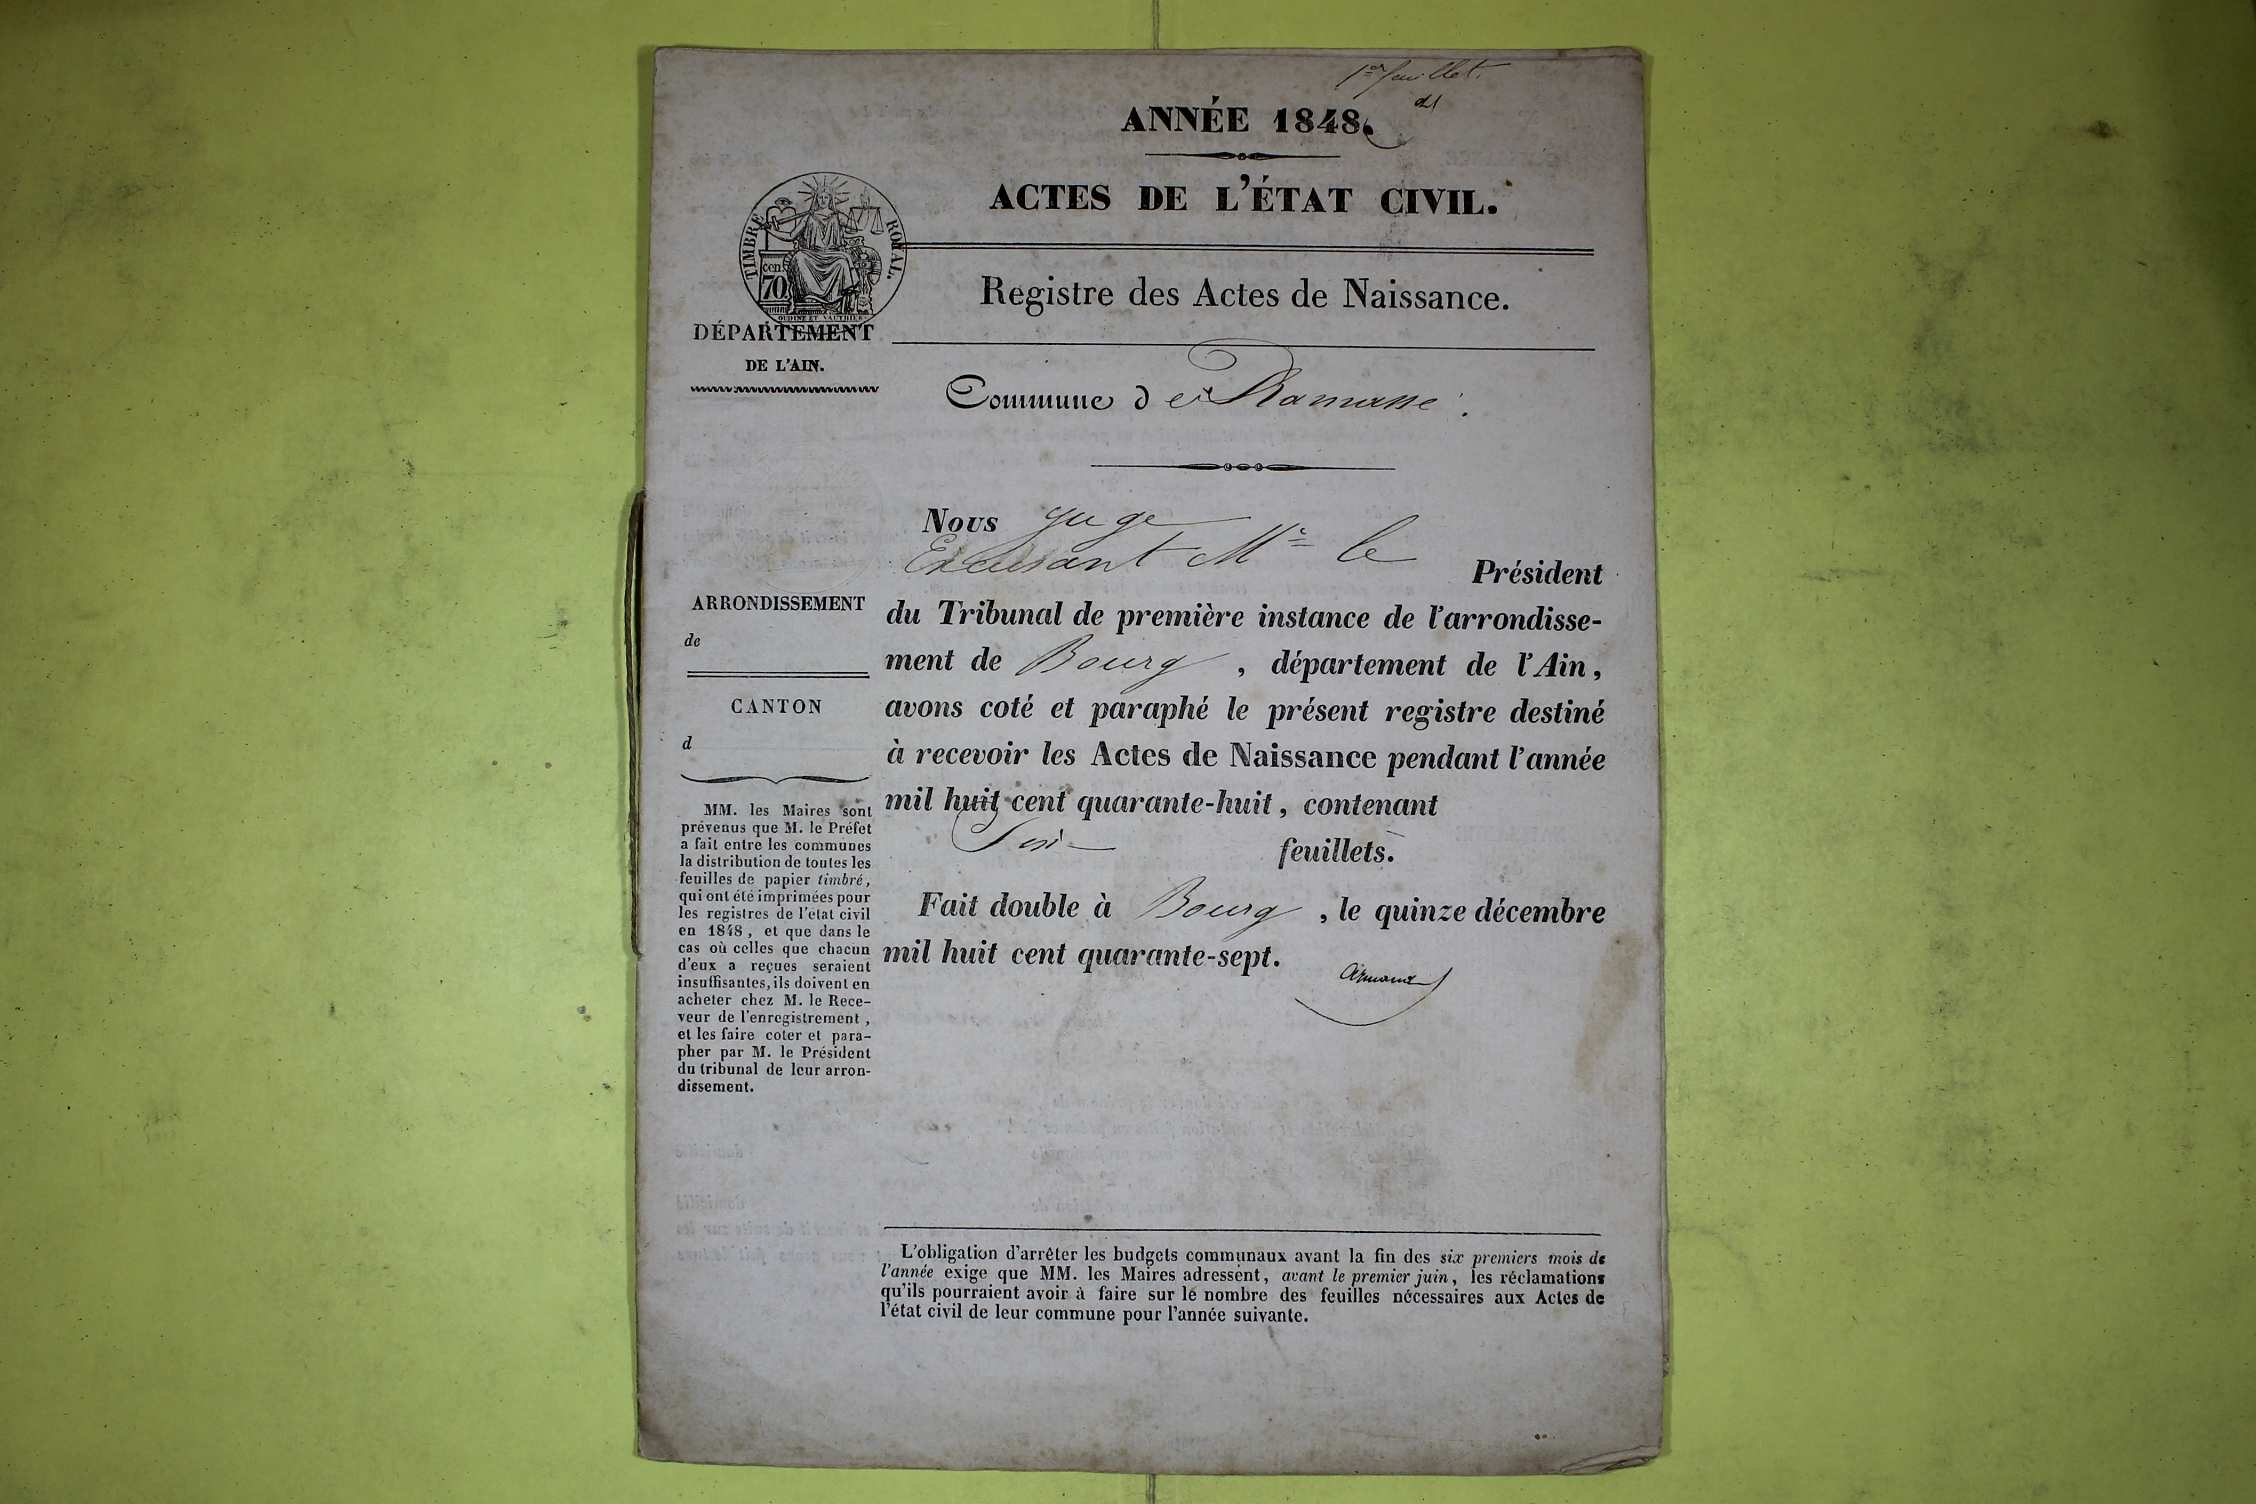 1er feuillet.
ANNÉE 1848.
ACTES DE L'ÉTAT CIVIL.
TIMBRE ROYAL.
cen.
70
OUDINÉ ET VAUTHIER
Registre des Actes de Naissance.
DÉPARTEMENT
DE L'AIN.
Commune de Ramasse.
Nous juge
Excusant Mr le Président
du Tribunal de première instance de l'arrondisse-
ment de Bourg, département de l'Ain,
avons coté et paraphé le présent registre destiné
à recevoir les Actes de Naissance pendant l'année
mil huit cent quarante-huit, contenant
Six feuillets.
Fait double à Bourg, le quinze décembre
mil huit cent quarante-sept.
ARRONDISSEMENT
de
CANTON
d
MM. les Maires sont
prévenus que M. le Préfet
a fait entre les communes
la distribution de toutes les
feuilles de papier timbré,
qui ont été imprimées pour
les registres de l'état civil
en 1848, et que dans le
cas où celles que chacun
d'eux a reçues seraient
insuffisantes, ils doivent en
acheter chez M. le Rece-
veur de l'enregistrement,
et les faire coter et para-
pher par M. le Président
du tribunal de leur arron-
dissement.
L'obligation d'arrêter les budgets communaux avant la fin des six premiers mois de
l'année exige que MM. les Maires adressent, avant le premier juin, les réclamations
qu'ils pourraient avoir à faire sur le nombre des feuilles nécessaires aux Actes de
l'état civil de leur commune pour l'année suivante.